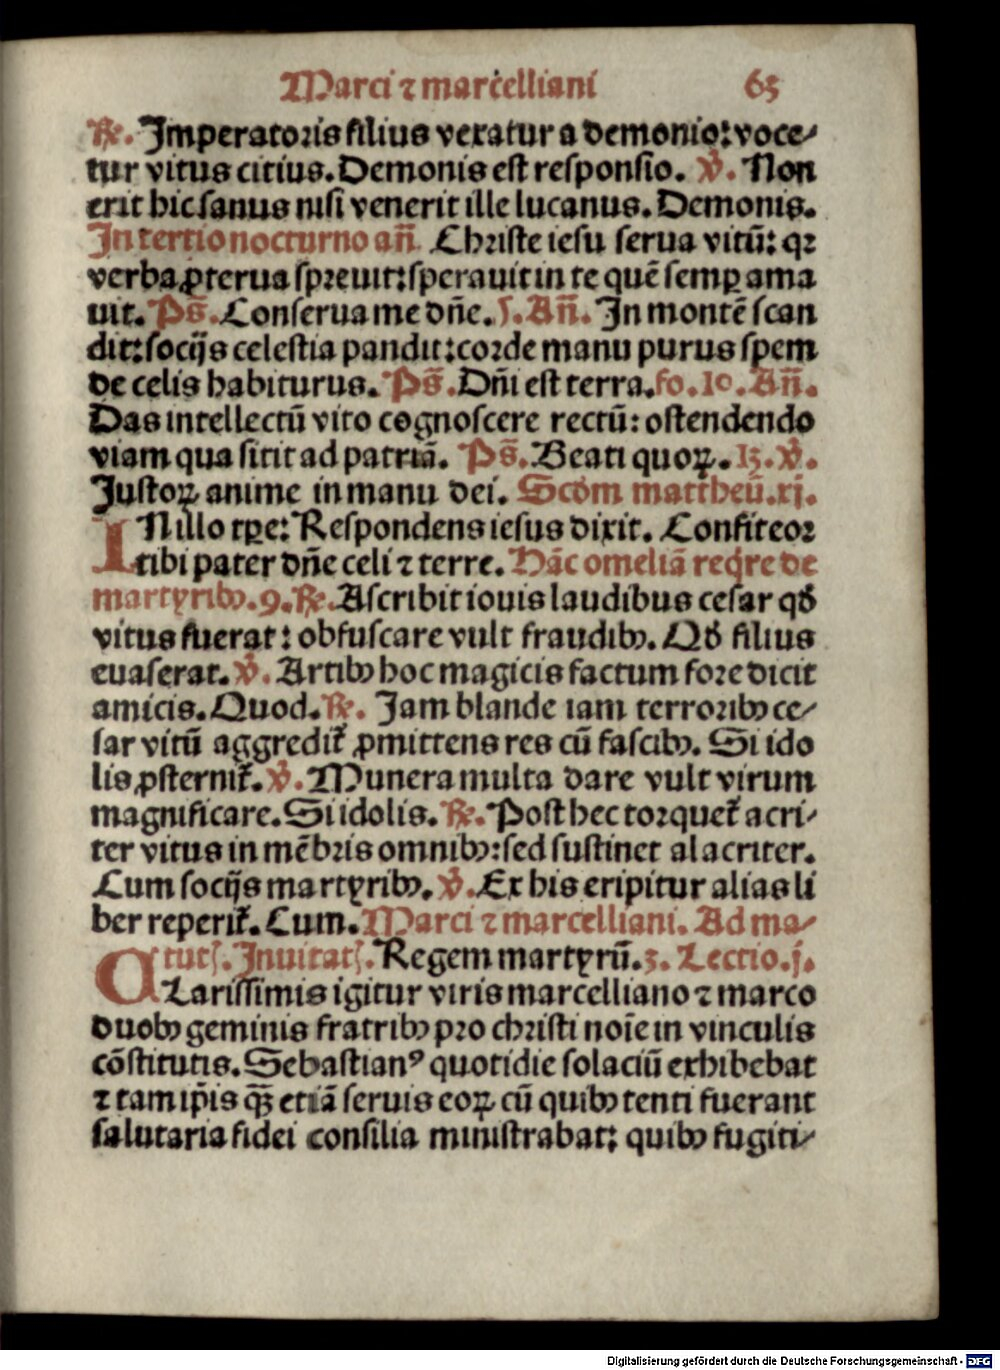 Marci ⁊ marcelliani 65
℟. Imperatoris filius vexatur a demonio: voce⸗
tur vitus citius. Demonis est responsio. ℣. Non
erit hic sanus nisi venerit ille lucanus. Demonis.
In tertio nocturno añ. Christe iesu serua vitū: qꝛ
verba ꝓterua spreuit: sperauit in te quē semꝑ ama
uit. Ps̄. Conserua me dn̄e. 5. Añ. In montē scan
dit: socijs celestia pandit: corde manu purus spem
de celis habiturus. Ps̄. Dn̄i est terra. fo. 10. Añ.
Das intellectū vito cognoscere rectū: ostendendo
viam qua sitit ad patriā. Ps̄. Beati quoꝝ. 13. ℣.
Iustoꝝ anime in manu dei. Scd̄m mattheū. xj.
IN illo tꝑe: Respondens iesus dixit. Confiteor
tibi pater dn̄e celi ⁊ terre. Hāc omeliā reqͥre de
martyribꝰ. 9. ℟. Ascribit iouis laudibus cesar qđ
vitus fuerat: obfuscare vult fraudibꝰ. Qđ filius
euaserat. ℣. Artibꝰ hoc magicis factum fore dicit
amicis. Quod. ℟. Iam blande iam terroribꝰ ce⸗
sar vitū aggredit᷑ ꝓmittens res cū fascibꝰ. Si ido
lis ꝓsternit᷑. ℣. Munera multa dare vult virum
magnificare. Si idolis. ℟. Post hec torquet᷑ acri⸗
ter vitus in mēbris omnibꝰ: sed sustinet alacriter.
Cum socijs martyribꝰ. ℣. Ex his eripitur alias li
ber reperit᷑. Cum. Marci ⁊ marcelliani. Ad ma⸗
tutꝭ. Inuitatꝭ. Regem martyrū. 3. Lectio. j.
CLarissimis igitur viris marcelliano ⁊ marco
duobꝰ geminis fratribꝰ pro christi noīe in vinculis
cōstitutis. Sebastianꝰ quotidie solaciū exhibebat
⁊ tam ip̄is qꝫ̄ etiā seruis eoꝝ cū quibꝰ tenti fuerant
salutaria fidei consilia ministrabat: quibꝰ fugiti⸗
Digitalisierung gefördert durch die Deutsche Forschungsgemeinschaft - DFG